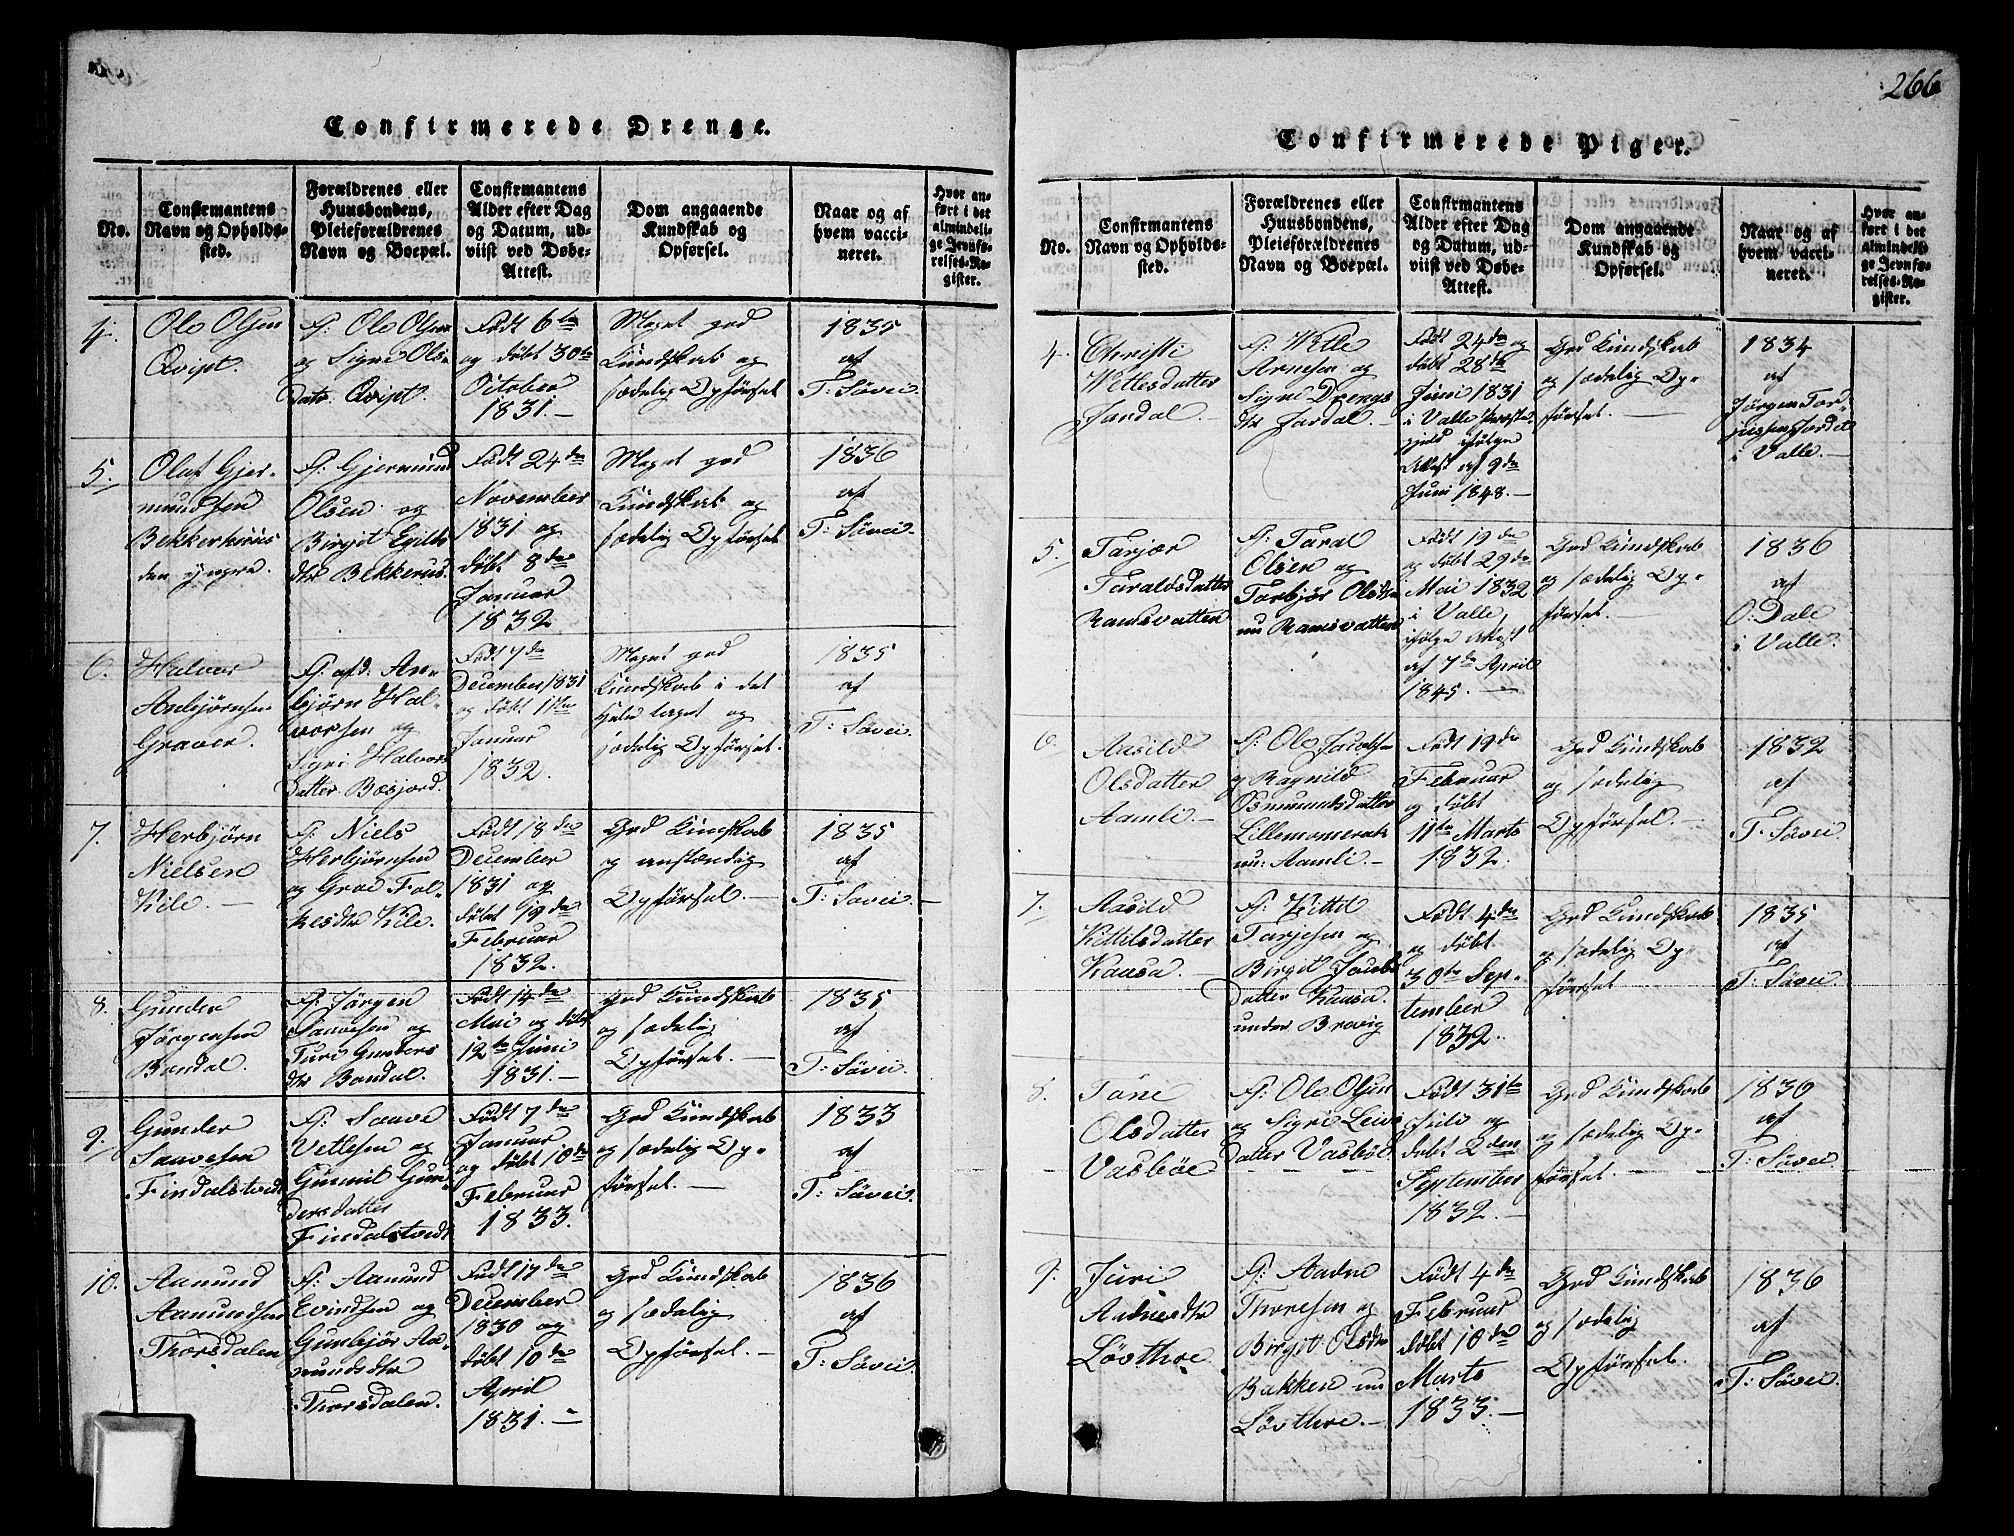 266
Confirmerede Drenge.
No.
Confirmantens
Navn og Opholds-
sted.
Forældrenes eller
Huusbondens,
Pleieforældrenes
Navn og Boepæl.
Confirmantens
Alder efter Dag
og Datum, ud-
viist ved Døbe-
Attest.
Dom angaaende
Kundskab og
Opførsel.
Naar og af
hvem vacci-
neret.
Hvor an-
ført i det
almindeli-
ge Jevnfø-
relses-Re-
gister.
4.
Ole Olsen
Qvipt.
F: Ole Olsen
og Sigri Ols-
datr. Qvipt.
Født 6te
og døbt 30te
October
1831.—
Meget god
Kundskab og
sædelig Opførsel
1835
af
T: Søvei.
5.
Olaf Gjer-
mundsen
Bekkerhuus
den yngre.
F: Gjermund
Olsen og
Birgit Egilds
dtr Bekkerus.
Født 24de
November
1831 og
døbt 8de
Januar
1832
Meget god
Kundskab og
sædelig Opførsel
1836
af
T: Søvei.
6.
Halvor
Anbjørnsen
Graver.
F: afd: An-
bjørn Hal-
vorsen og
Sigri Halvors
datter Bøsjord.
Født 7de
December 1831
og døbt 11te
Januar
1832.
Meget god
Kundskab i det
Hele taget og
sædelig Opførsel.
1835
af
T: Søvei.
7.
Herbjørn
Nielsen
Kile.—
F: Niels
Herbjørnsen
og Groe Fol-
kesdtr Kile.
Født 18de
December
1831 og
døbt 19de
Februar
1832.
God Kundskab
og anstændig
Opførsel.—
1835
af
T: Søvei.—
8.
Gunder
Jørgensen
Bandal.
F: Jørgen
Saavesen og
Turi Gunders
dtr Bandal.
Født 14de
Mai og døbt
12te Juni
1831.—
God Kundskab
og sædelig
Opførsel.—
1835
af
T: Søvei.
9.
Gunder
Saavesen
Findalstvedt
F: Saave
Vetlesen og
Gunnil Gun-
dersdatter
Findalstvedt
Født 7de
Januar
og døbt 10de
Februar
1833.
God Kundskab
og sædelig Op-
førsel.—
1833
af
T: Søvei.
10.
Aanund
Aanundsen
Thorsdalen
F: Aanund
Evindsen og
Gunbjør Aa-
nundsdtr
Thorsdalen.
Født 17de
December
1830 og
døbt 10de
April
1831.—
God Kundskab
og sædelig
Opførsel.—
1836
af
T: Søvei.
Confirmerede Piger.
No.
Confirmantens
Navn og Opholds-
sted.
Forældrenes eller
Huusbondens,
Pleieforældrenes
Navn og Boepæl.
Confirmantens
Alder efter Dag
og Datum, ud-
viist ved Døbe-
Attest.
Dom angaaende
Kundskab og
Opførsel.
Naar og af
hvem vacci-
neret.
Hvor an-
ført i det
almindeli-
ge Jevnfø-
relses-Re-
gister.
4.
Christi
Vetlesdatter
Jardal.—
F: Vetle
Arnesen og
Sigri Drengs
dtr Jardal.—
Født 24de og
døbt 28de
Juni 1831
i Valle Præste-
gjeld ifølge
Attest af 9de
Juni 1848.—
God Kundskab
og sædelig Op-
førsel.—
1834
af
Jørgen Tor-
i Valle.—
5.
Tarjær
Taraldsdatter
Ramsvatten
F: Taral
Olsen og
Torbjør Olsdtr
nu Ramsvatten
Født 19de
og døbt 29de
Mai 1832
i Valle
ifølge Attest
af 7de April
1845.—
God Kundskab
og sædelig Op-
førsel.—
1836
af
O: Dale
i Valle.
6.
Aasild
Olsdatter
Aamli.—
F: Ole
og Ragnild
Osmundsdatter
nu: Aamli.—
Født 19de
Februar
og døbt
11te Marts
1832.
God Kundskab
og sædelig
Opførsel.—
1832
af
T: Søvei
7.
Aasild
Kittilsdatter
Kausa.—
F: Kittel
Tarjesen og
Birgit Jacobs
datter Kausa.
under Brovig
Født 4de
og døbt
30te Sep-
tember
1832.
God Kundskab
og sædelig Op-
førsel
1835
af
T: Søvei.
8.
Tone
Olsdatter
Vasbøe
F: Ole Olsen
og Sigri Leivs
datter Vasbøe.
Født 31te
Juli og
døbt 2den
September
1832.—
God Kundskab
og sædelig Op-
førsel.—
1836
af
T: Søvei.
9.
Juri
Aadnesdtr
Løvthre
F: Aadne
Thoresen og
Birgit Olsdtr
Bakken nu
Løvthre.—
Født 4de
Februar
døbt 10de
Marts
1833.—
God Kundskab
og sædelig
Opførsel.
1836
af
T: Søvei.